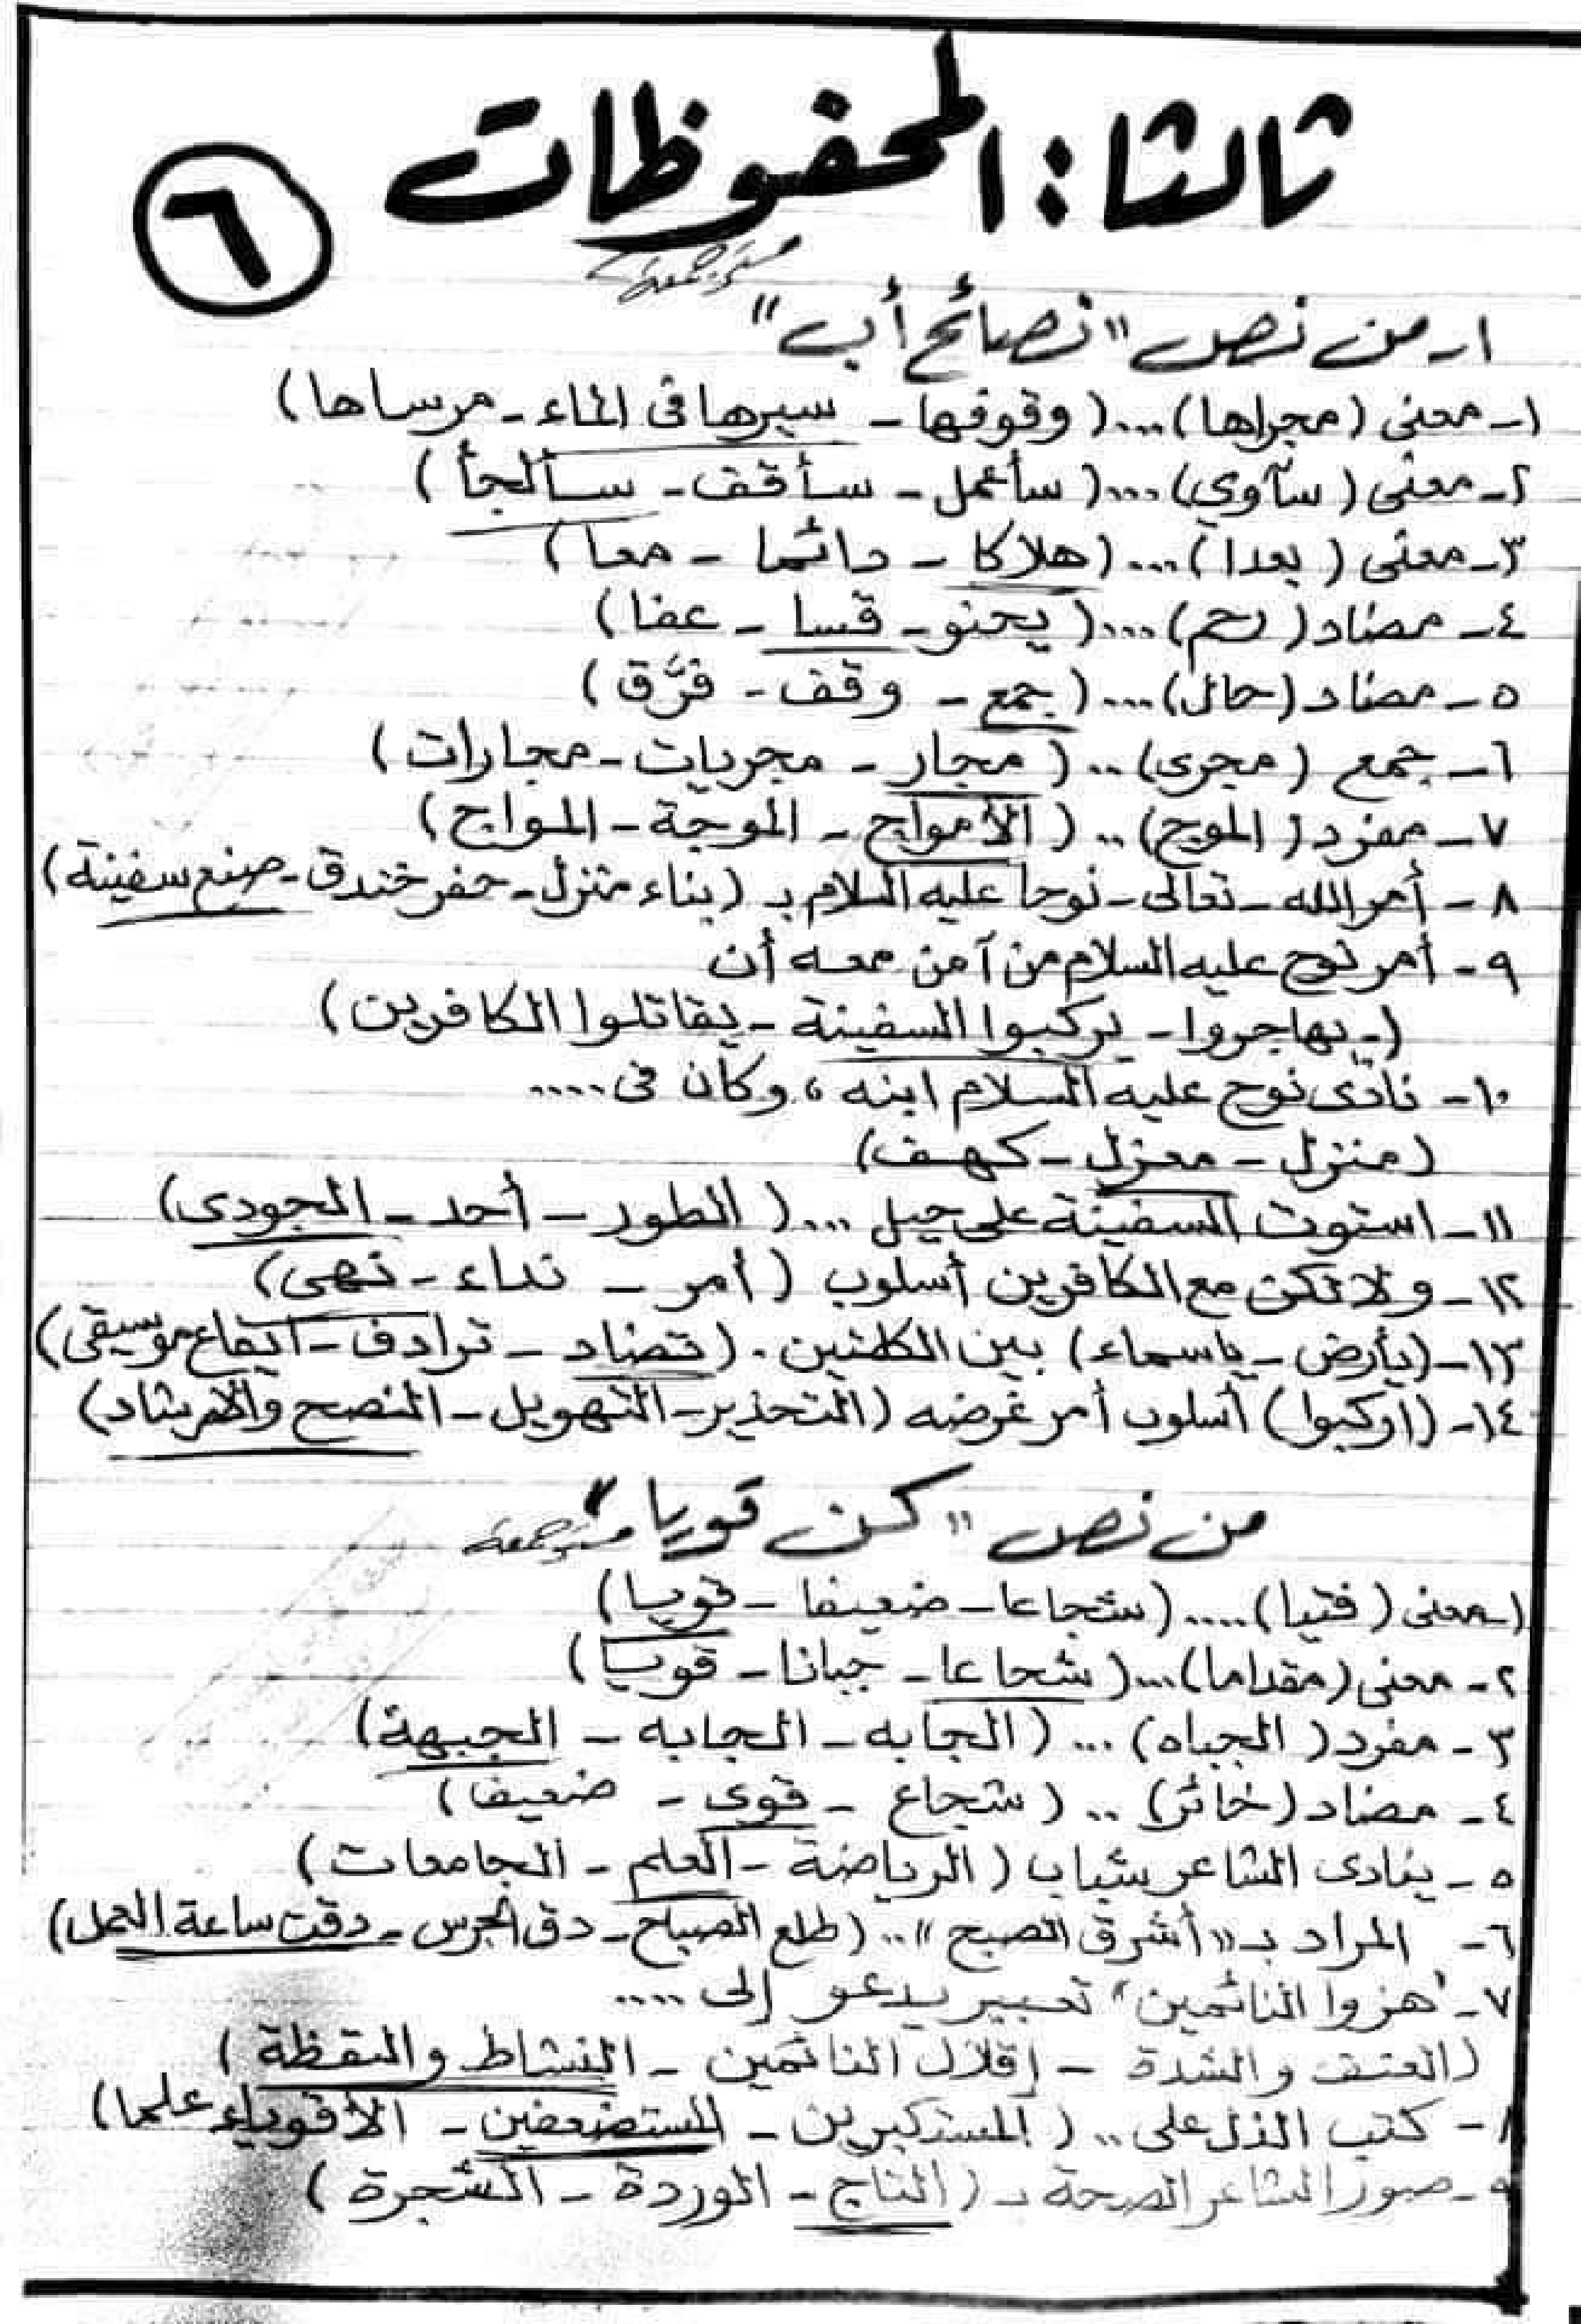 ثالثا: المحفوظات
٦
١- من نص "نصائح أب"
١- معنى (مجراها) .... (وقوفها - سيرها فى الماء - مرساها)
٢- معنى (سآوي) .... (سأعمل - سأقف - سألجأ)
٣- معنى (بعدا) .... (هلاكا - دائما - معا)
٤- مضاد (رحم) .... (يحنو - قسا - عفا)
٥- مضاد (حال) .... (جمع - وقف - فرَّق)
٦- جمع (مجرى) .. (مجار - مجريات - مجارات)
٧- مفرد (الموج) .. (الأمواج - الموجة - المواج)
٨- أمر الله - تعالى - نوحا عليه السلام بـ (بناء منزل - حفر خندق - صنع سفينة)
٩- أمر نوح عليه السلام من آمن معه أن
(- يهاجروا - يركبوا السفينة - يقاتلوا الكافرين)
١٠- نادى نوح عليه السلام ابنه ، وكان فى ....
(منزل - معزل - كهف)
١١- استوت السفينة على جبل .... (الطور - أحد - الجودى)
١٢- ولا تكن مع الكافرين أسلوب (أمر - نداء - نهى)
١٣- (يأرض - ياسماء) بين الكلمتين . (تضاد - ترادف - ايقاع موسيقى)
١٤- (اركبوا) أسلوب أمر غرضه (التحذير - التهويل - النصح والإرشاد)
من نص "كن قويا"
١- معنى (فتيا) .... (شجاعا - ضعيفا - قويا)
٢- معنى (مقداما) ... (شجاعا - جبانا - قويا)
٣- مفرد (الجباه) ... (الجابه - الجابه - الجبهة)
٤- مضاد (خائر) .. (شجاع - قوى - ضعيف)
٥- ينادى الشاعر شباب (الرياضة - العلم - الجامعات)
٦- المراد بـ "أشرق الصبح" .. (طلع الصباح - دق الجرس - دقت ساعة العمل)
٧- "هزوا النائمين" تعبير يدعو إلى ....
(العنف والشدة - إقلال النائمين - النشاط واليقظة)
٨- كتب الذل على .. (المستكبرين - المستضعفين - الأقوياء علما)
٩- صور الشاعر الصحة بـ (التاج - الوردة - الشجرة)